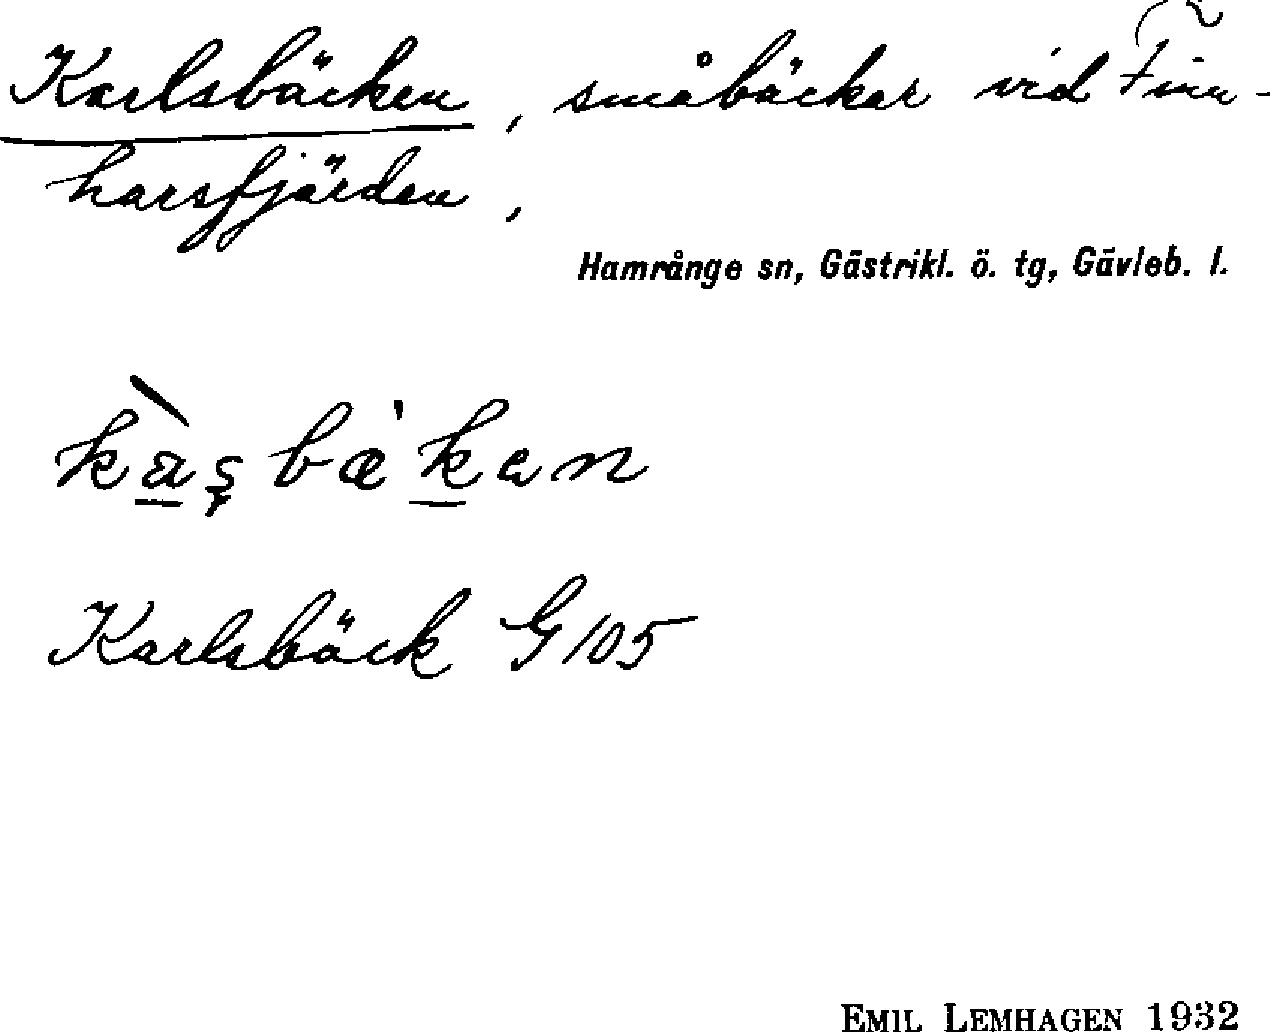 Karlsbäcken, småbäckar vid Finn-
harsfjärden,
Hamrånge sn, Gästrikl. ö. tg, Gävleb. l.
Karlsbäck G 105
EMIL LEMHAGEN 1932